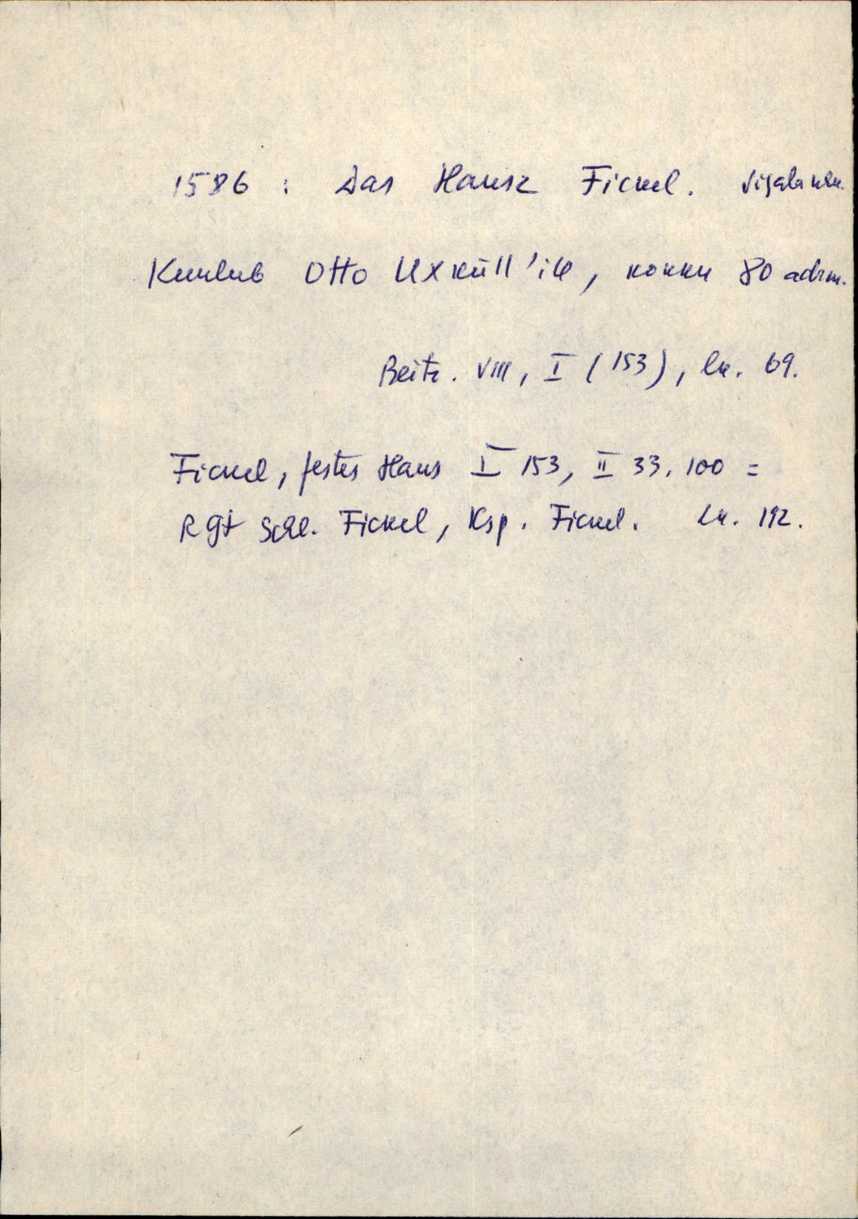 1586 : Das Hausz Fickel. Vigala khk.
Kuulub Otto Uxküll'ile, kokku 80 adrm.
Beitr. VIII, I (153), lk. 69.
Fickel, festes Haus I 153, II 33, 100 =
Rgt Schl. Fickel, Ksp. Fickel. Lk. 192.